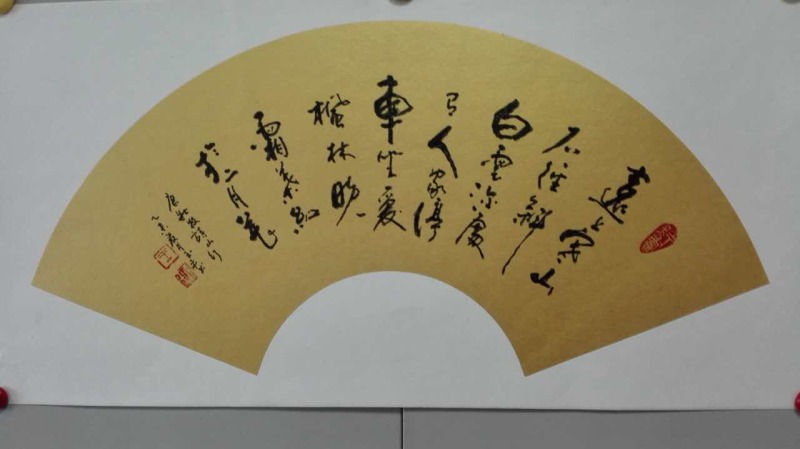 遠上寒山
石徑斜
白雲深處
有人家停
車坐愛
楓林晚
霜葉紅
於二月花
唐杜牧詩山行
乙未